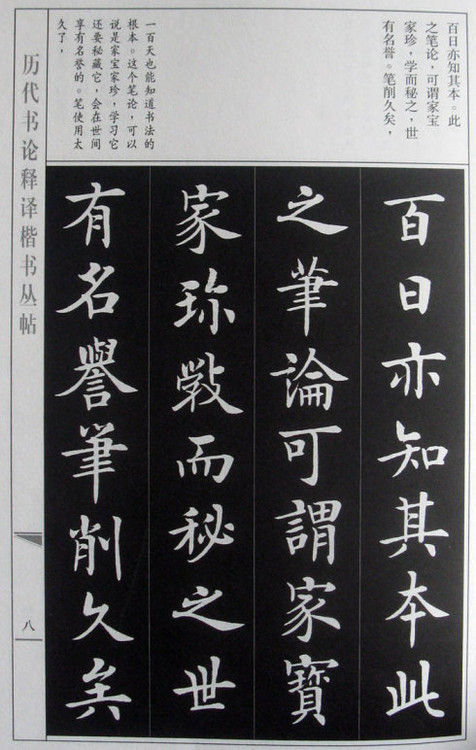 百日亦知其本。此
之笔论，可谓家宝
家珍，学而秘之，世
有名誉。笔削久矣，
一百天也能知道书法的
根本。这个笔论，可以
说是家宝家珍，学习它
还要秘藏它，会在世间
享有名誉的。笔使用太
久了，
百日亦知其本此
之筆論可謂家寶
家珎斆而秘之世
有名譽筆削久矣
历代书论释译楷书丛帖
八